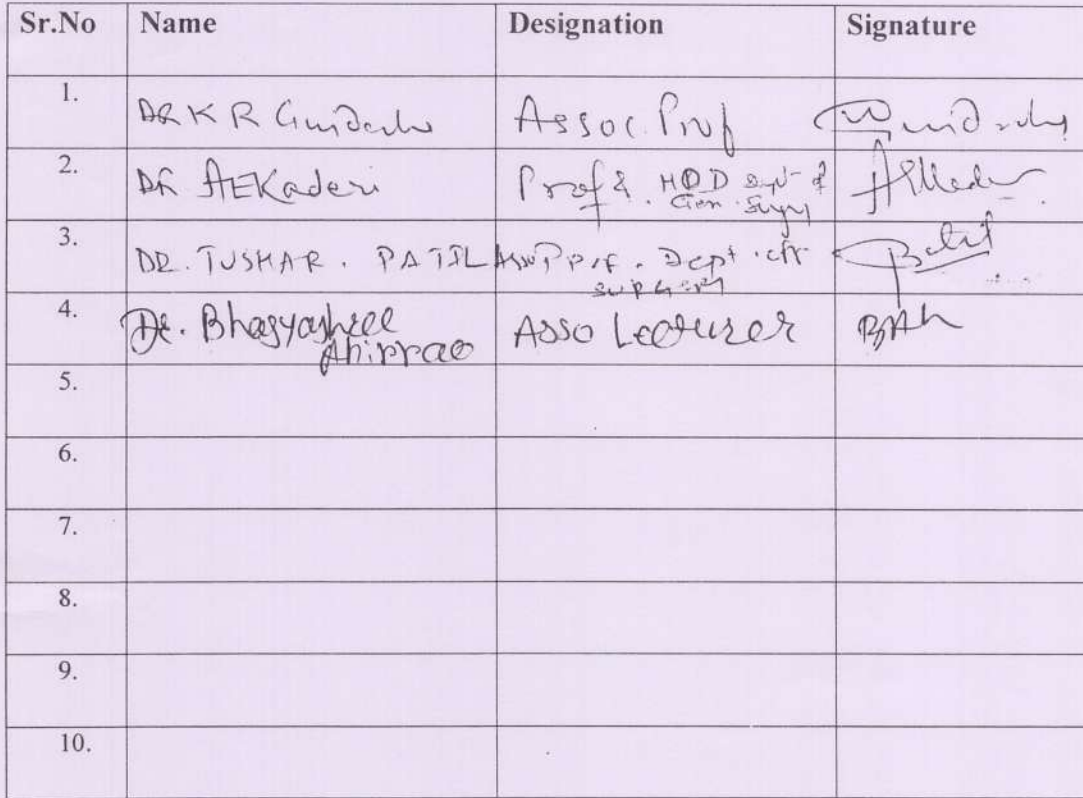 Sr.No Name Designation Signature
1. DR K R Assoc. Prof
2. DR A E Kaderi Prof & HOD Dept of
Gen. Surgery
3. DR. TUSHAR. PATIL Asst Prof. Dept. of
surgery
4. Dr. Bhagyashree Asso Lecturer
Ahirrao
5.
6.
7.
8.
9.
10.